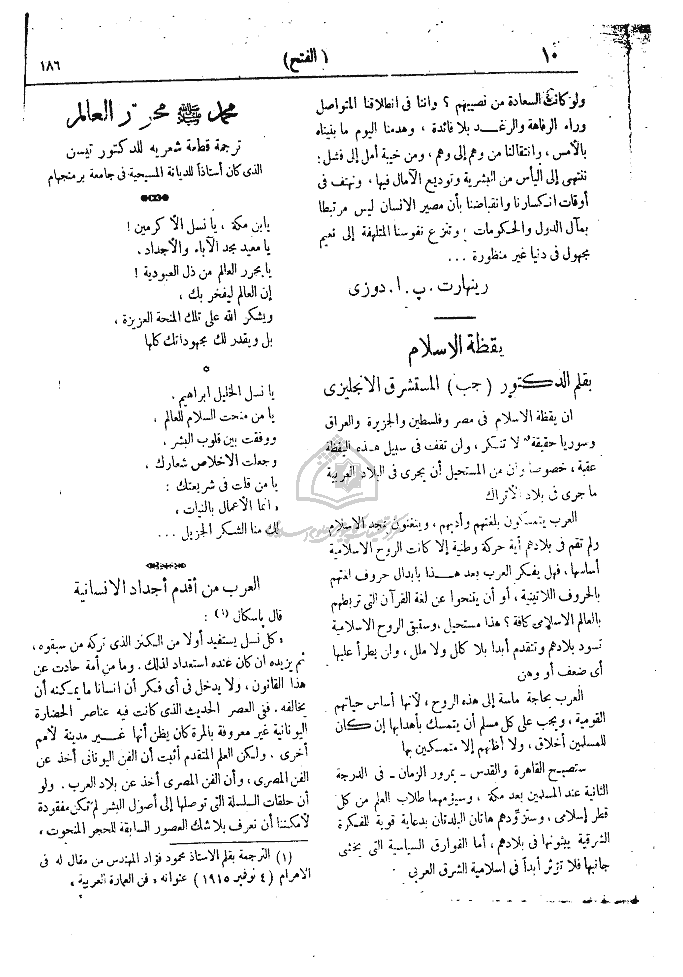 ١٠
(الفتح)
١٨٦
ولو كانت السعادة من نصيبهم ؟ واننا فى انطلاقنا المتواصل
وراء الرفاهة والرغد بلا فائدة ، وهدمنا اليوم ما بنيناه
بالأمس ، وانتقالنا من وهم إلى وهم ، ومن خيبة أمل إلى فشل :
ننتهى إلى اليأس من البشرية وتوديع الآمال فيها ، ونهتف فى
أوقات انكسارنا وانقباضنا بأن مصير الانسان ليس مرتبطا
بمآل الدول والحكومات ، وتنزع نفوسنا المتلهفة إلى نعيم
مجهول فى دنيا غير منظورة ...
رينهارت . پ . ا . دوزى
يقظة الاسلام
بقلم الدكتور (جب) المستشرق الانجليزى
ان يقظة الاسلام فى مصر وفلسطين والجزيرة والعراق
وسوريا حقيقة لا تنكر ، ولن تقف فى سبيل هذه اليقظة
عقبة ، خصوصا وان من المستحيل أن يجرى فى البلاد العربية
ما جرى فى بلاد الأتراك
العرب يتمسكون بلغتهم وأدبهم ، ويتغنون بمجد الاسلام
ولم تقم فى بلادهم أية حركة وطنية إلا كانت الروح الاسلامية
أساسها ، فهل يفكر العرب بعد هذا بابدال حروف لغتهم
بالحروف اللاتينية ، أو أن يتنحوا عن لغة القرآن التى تربطهم
بالعالم الاسلامى كافة ؟ هذا مستحيل ، وستبقى الروح الاسلامية
تسود بلادهم وتتقدم أبدا بلا كال ولا ملل ، ولن يطرأ عليها
أى ضعف أو وهن
العرب بحاجة ماسة إلى هذه الروح ، لأنها أساس حياتهم
القومية ، ويجب على كل مسلم أن يتمسك بأهدابها إن كان
للمسلمين أخلاق ، ولا أظنهم إلا متمسكين بها
ستصبح القاهرة والقدس - بمرور الزمان - فى الدرجة
الثانية عند المسلمين بعد مكة ، وسيؤمهما طلاب العلم من كل
قطر إسلامى ، وستزودهم هاتان البلدتان بدعاية قوية للفكرة
الشرقية يبثونها فى بلادهم ، أما الفوارق السياسية التى يخشى
جانبها فلا تؤثر أبداً فى اسلامية الشرق العربى
محمد ﷺ محرر العالم
ترجمة قطعة شعرية للدكتور تيسن
الذى كان أستاذاً للديانة المسيحية فى جامعة برمنجهام
يابن مكة ، يا نسل الأكرمين !
يا معيد مجد الآباء والأجداد .
يا محرر العالم من ذل العبودية !
إن العالم ليفخر بك ،
ويشكر الله على تلك المنحة العزيزة ،
بل ويقدر لك مجهوداتك كلها
٥
يا نسل الخليل ابراهيم .
يا من منحت السلام للعالم ،
ووفقت بين قلوب البشر ،
وجعلت الاخلاص شعارك .
يا من قلت فى شريعتك :
« انما الأعمال بالنيات ،
لك منا الشكر الجزيل ...
العرب من أقدم أجداد الانسانية
قال باسكال (١) :
« كل نسل يستفيد أولا من الكنز الذى تركه من سبقوه ،
ثم يزيده ان كان عنده استعداد لذلك . وما من أمة حادت عن
هذا القانون ، ولا يدخل فى أى فكر أن انسانا ما يمكنه أن
يخالفه . ففى العصر الحديث الذى كانت فيه عناصر الحضارة
اليونانية غير معروفة بالمرة كان يظن أنها غير مدينة لأمم
أخرى . ولكن العلم المتقدم أثبت أن الفن اليونانى أخذ عن
الفن المصرى ، وأن الفن المصرى أخذ عن بلاد العرب . ولو
أن حلقات السلسلة التى توصلها إلى أصول البشر لم تكن مفقودة
لأمكننا أن نعرف بلا شك العصور السابقة للحجر المنحوت ،
(١) الترجمة بقلم الاستاذ محمود فؤاد المهندس من مقال له فى
الاهرام (٤ نوفمبر ١٩١٥) عنوانه « فن العمارة العربية »